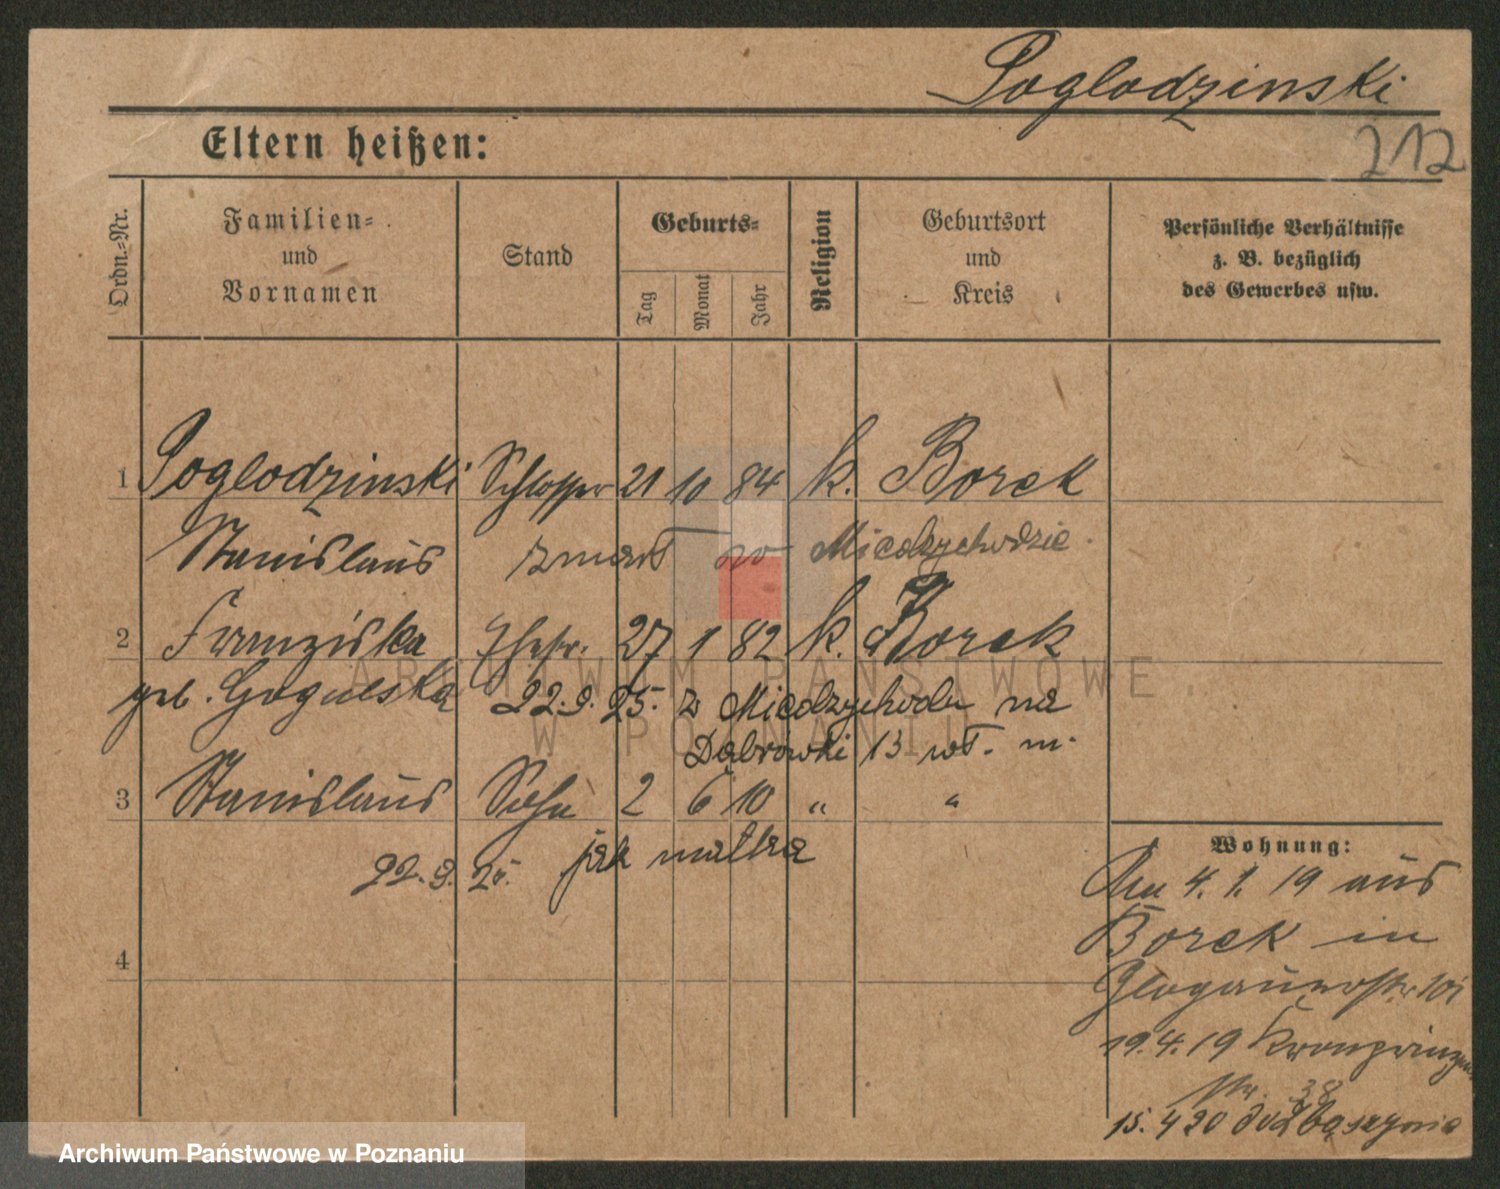 Poglodzinski
212
Eltern heißen:
Ordn.-Nr.
Familien-
und
Vornamen
Stand
Geburts-
Tag
Monat
Jahr
Religion
Geburtsort
und
Kreis
Persönliche Verhältnisse
z. B. bezüglich
des Gewerbes usw.
1 Poglodzinski Schlosser 21 10 84 k. Borek
Stanislaus zmarł w Międzychodzie.
2 Franziska Ehefr. 27 1 82 k. Borek
geb. Gogulska 22.9.25. z Międzychodu na
Dąbrówki 13 wł. m.
3 Stanislaus Sohn 2 6 10 " "
22.9.25. jak matka
4
Wohnung:
Am 4.1.19 aus
Borek in
Glogauerstr.
19.4.19 Kronprinzen
str. 38
15.4 20
ARCHIWUM PAŃSTWOWE
W POZNANIU
Archiwum Państwowe w Poznaniu